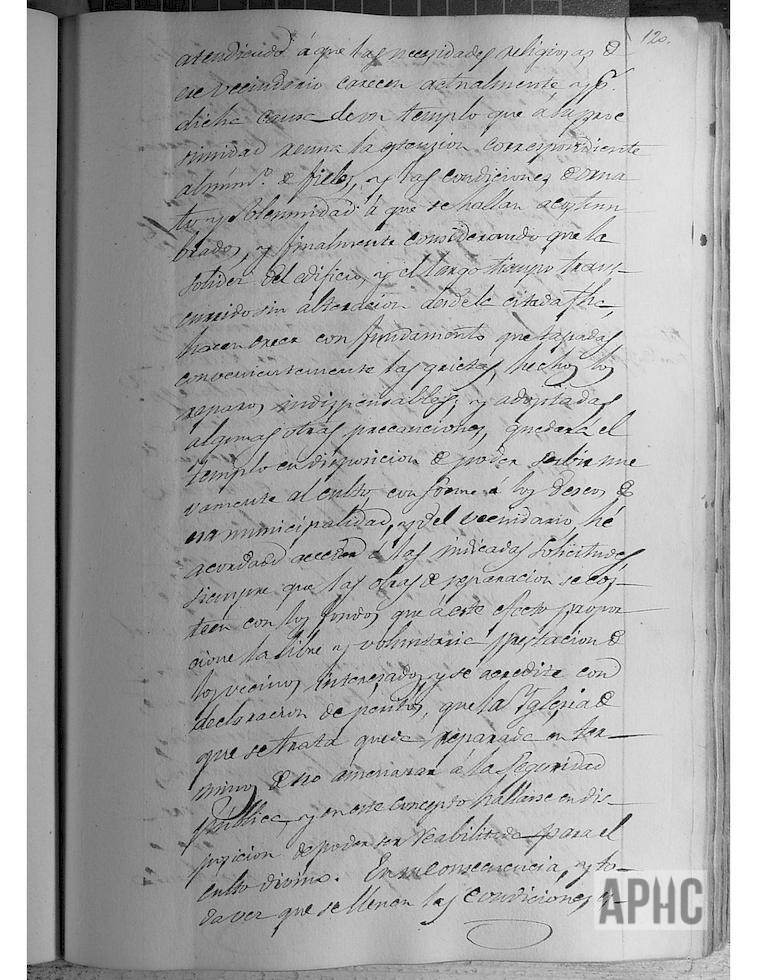 120.
atendiendo á que las necesidades religiosas de
ese vecindario carecen actualmente y p.r
dicha causa de un templo que á la proc
simidad reuna la estension correspondiente
al núm.o de fieles, y las condiciones de orna
to y solemnidad á que se hallan acostum
brados, y finalmente considerando que la
solidez del edificio, y el largo tiempo trans-
currido sin alteracion desde la citada fha,
hacen creer con fundamento que tapadas
convenientemente las grietas, hechos los
reparos indispensables, y adoptadas
algunas otras precauciones, quedará el
templo en disposicion de poder servir nue
vamente al culto, conforme á los deseos de
esa municipalidad, y del vecindario, hé
acordado acceder á las indicadas solicitudes
siempre que las obras de reparacion se cos-
teen con los fondos que á este efecto propor
cione la libre y voluntaria prestacion de
los vecinos interesados, y se acredite con
declaracion de peritos, que la Iglesia de
que se trata quede reparada en ter-
minos de no amenazar á la seguridad
pública, y en este concepto hallarse en dis-
posicion de poder ser reabilitada para el
culto divino. En su consecuencia, y to-
da vez que se llenen las condiciones
APHC